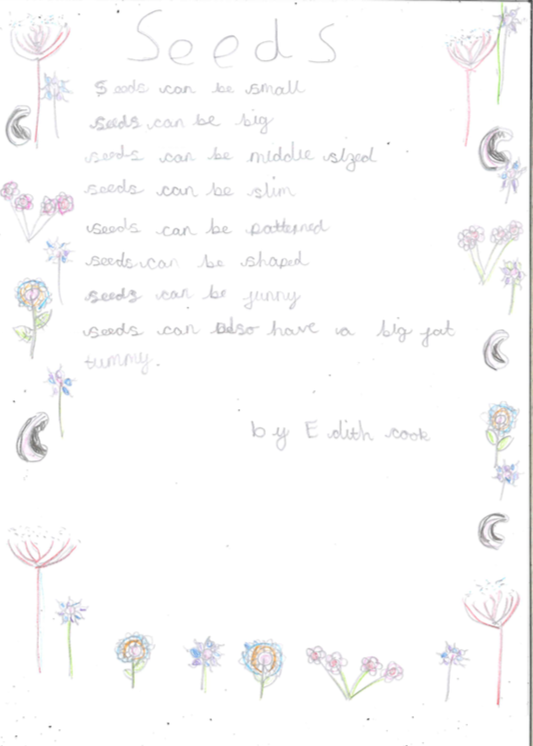 Seeds
Seeds can be small
seeds can be big
seeds can be middle sized
seeds can be slim
seeds can be patterned
seeds can be shaped
seeds can be funny
seeds can also have a big fat
tummy.
by Edith cook